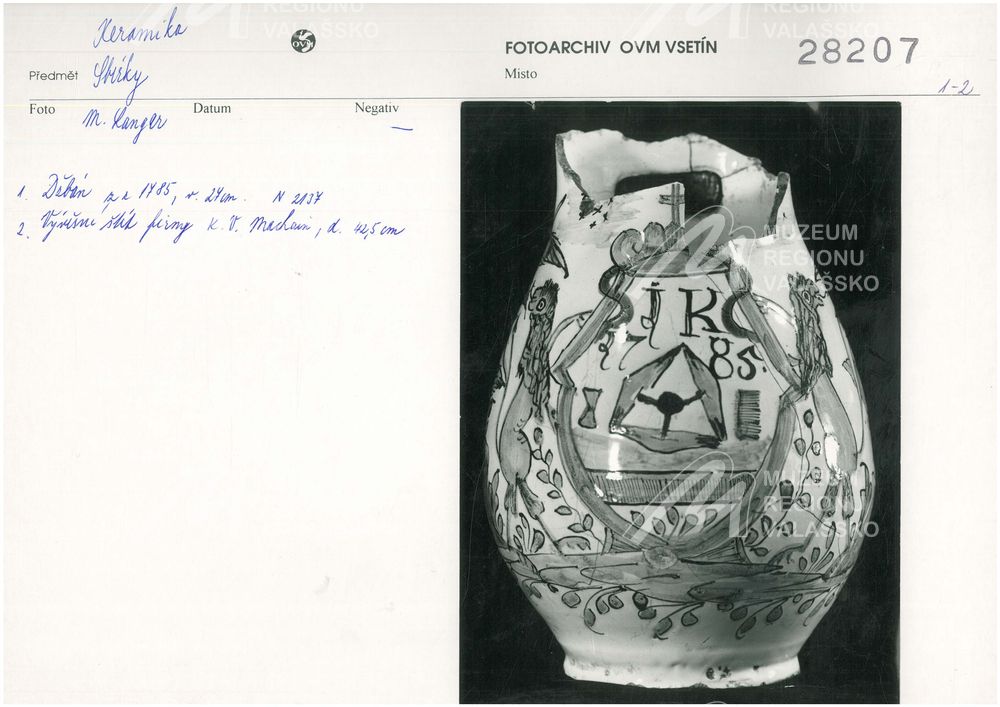 Keramika
OVM
FOTOARCHIV OVM VSETÍN
28207
Předmět Sbírky
Místo
1-2
Foto M. Langer
Datum
Negativ —
1. Džbán z r. 1785, v. 24cm. N 2137
2. Vývěsní štít firmy K. V. , d. 42,5 cm
I K
17 85.
MUZEUM
REGIONU
VALAŠSKO
MUZEUM
REGIONU
VALAŠSKO
REGIONU
VALAŠSKO
REGIONU
VALAŠSKO